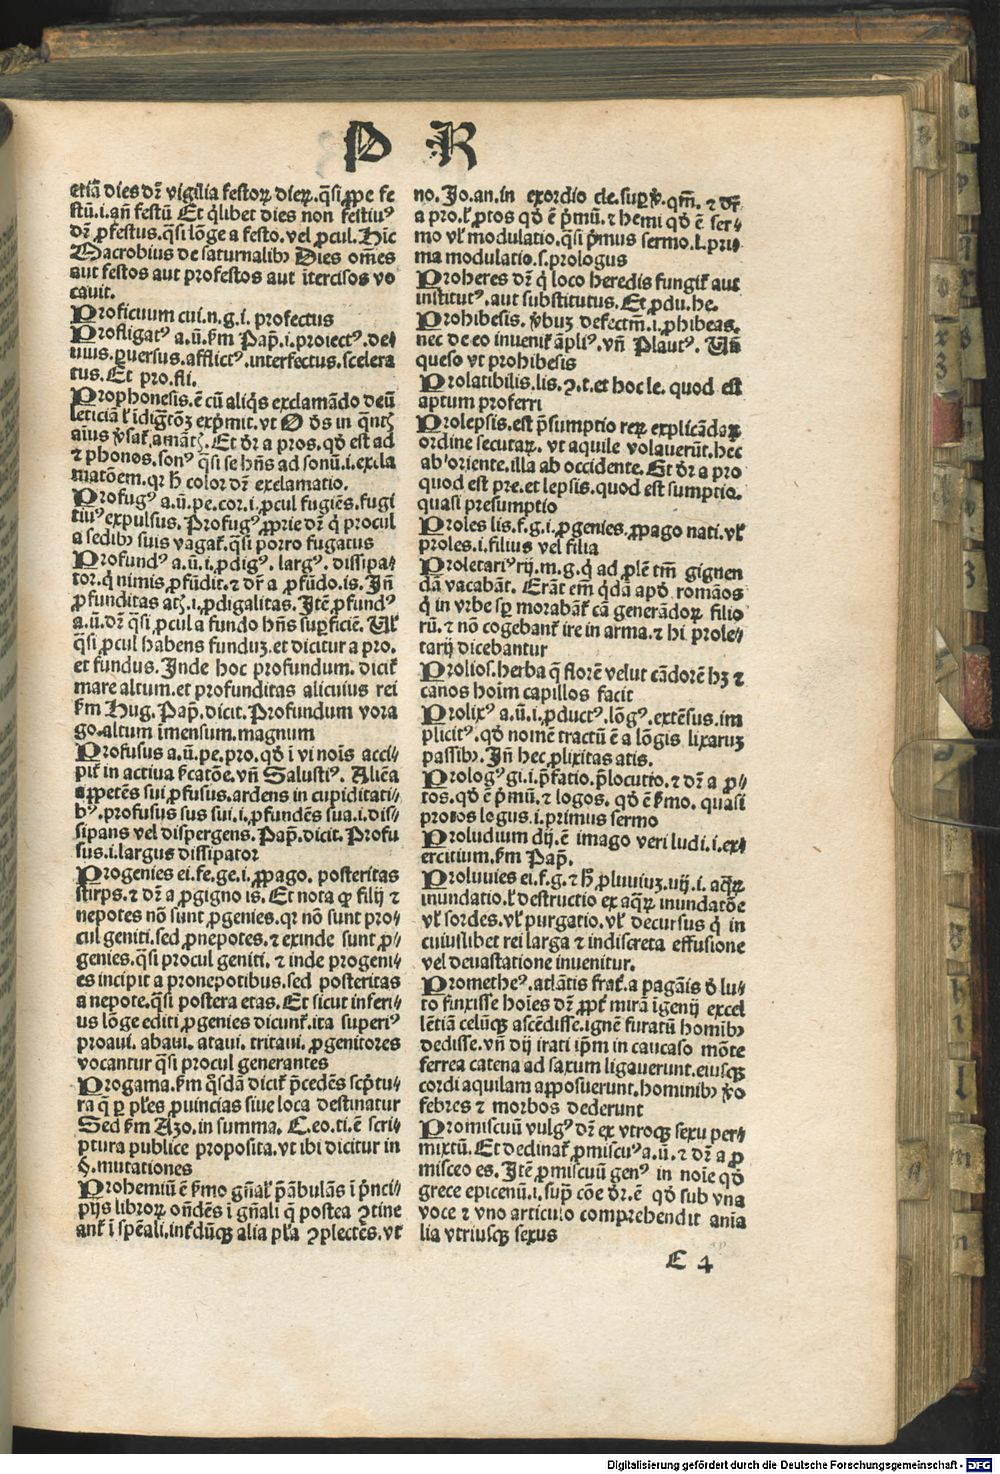 P R
etiā dies dr̄ vigilia festoꝝ dieꝝ.q̄si ꝓpe fe
stū.i.an̄ festū Et q̄libet dies non festiuꝰ
dr̄ ꝓfestus.q̄si lōge a festo.vel ꝓcul. Hīc
Macrobius de saturnalibꝫ Dies om̄es
aut festos aut profestos aut ītercisos vo
cauit.
Proficuum cui.n.g.i. profectus
Profligatꝰ a.ū.ẜm Pap̄.i.proiectꝰ.de⸗
uius.ꝑuersus.afflictꝰ.interfectus.scelera
tus.Et pro.fli.
Prophonesis.ē cū aliq̄s exclamādo deū
leticiā
aīus Et dr̄ a pros.qđ est ad
⁊ phonos.sonꝰ q̄si se hn̄s ad sonū.i.excla
matōem.qr color dr̄ exclamatio.
Profugꝰ a.ū.pe.cor.i.ꝓcul fugiēs.fugi
tiuꝰ expulsus.Profugꝰ ꝓprie dr̄ q̄ procul
a sedibꝫ suis vagat̄.q̄si porro fugatus
Profundꝰ a.ū.i.ꝓdigꝰ.largꝰ.dissipa⸗
tor.q̄ nimis ꝓfūdit.⁊ dr̄ a ꝓfūdo.is.Jn̄
ꝓfunditas atꝫ.i.ꝓdigalitas.Jtē ꝓfundꝰ
a.ū.dr̄ q̄si ꝓcul a fundo hn̄s suꝑficiē.Ul̄
q̄si ꝓcul habens funduꝫ.et dicitur a pro.
et fundus.Jnde hoc profundum. dicit̄
mare altum.et profunditas alicuius rei
ẜm Hug.Pap̄.dicit.Profundum vora
go.altum īmensum.magnum
Profusus a.ū.pe.pro.qđ ī vi noīs acci⸗
pit̄ in actiua ẜcatōe.vn̄ Salustiꝰ. Aliēa
appetēs sui ꝓfusus.ardens in cupiditati⸗
bꝰ.profusus sus sui.i.ꝓfundēs sua.i.dis⸗
sipans vel dispergens.Pap̄.dicit.Profu
sus.i.largus dissipator
Progenies ei.fe.ge.i.ꝓpago. posteritas
stirps.⁊ dr̄ a ꝓgigno is.Et nota ꝙ filij ⁊
nepotes nō sunt ꝓgenies.qr nō sunt pro⸗
cul geniti.sed ꝓnepotes.⁊ exinde sunt ꝓ⸗
genies.q̄si procul geniti.⁊ inde progeni⸗
es incipit a pronepotibus.sed posteritas
a nepote.q̄si postera etas.Et sicut inferi⸗
us lōge editi ꝓgenies dicunt̄.ita superiꝰ
proaui.abaui.ataui.tritaui.ꝓgenitores
vocantur q̄si procul generantes
Progama.ẜm q̄sdā dicit̄ p̄cedēs scp̄tu⸗
ra q̄ ꝑ pl̄es ꝓuincias siue loca destinatur
Sed ẜm Azo.in summa. C.eo.ti.ē scri⸗
ptura publice proposita.vt ibi dicitur in
§.mutationes
Prohemiū ē ẜmo gn̄al̄ p̄ābulās ī p̄nci⸗
pijs libroꝝ on̄dēs ī gn̄ali q̄ postea ꝯtine
ant̄ ī sp̄eali.int̄dūqꝫ alia pl̄a ꝯplectēs.vt
no.Jo.an.in exordio cle.suꝑ qm̄.⁊ dr̄
a pro.l̄ ꝓtos qđ ē p̄mū.⁊ hemi qđ ē ser⸗
mo vl̄ modulatio.q̄si p̄mus sermo.l̄.pri⸗
ma modulatio.s.prologus
Proheres dr̄ q̄ loco heredis fungit̄ aut
institutꝰ.aut substitutus.Et ꝓdu.he.
Prohibesis. v̄buꝫ defectm̄.i.ꝓhibeas.
nec de eo inuenit̄ āpliꝰ.vn̄ Plautꝰ. Un̄
queso vt prohibesis
Prolatibilis.lis.ꝯ.t.et hoc le. quod est
aptum proferri
Prolepsis.est p̄sumptio reꝝ explicādaꝝ
ordine secutaꝝ. vt aquile volauerūt.hec
ab oriente.illa ab occidente.Et dr̄ a pro
quod est pre.et lepsis.quod est sumptio.
quasi presumptio
Proles lis.f.g.i.ꝓgenies.ꝓpago nati.vl̄
proles.i.filius vel filia
Proletariꝰ rij.m.g.q̄ ad ꝓlē tm̄ gignen
dā vacabāt. Erāt em̄ q̄dā apđ romāos
q̄ in vrbe sꝑ morabāt̄ cā generādoꝝ filio
rū.⁊ nō cogebant̄ ire in arma.⁊ hi prole⸗
tarij dicebantur
Prolios.herba q̄ florē velut cādorē hꝫ ⁊
canos hoīm capillos facit
Prolixꝰ a.ū.i.ꝓductꝰ.lōgꝰ.extēsus.im
plicitꝰ.qđ nomē tractū ē a lōgis lixaruꝫ
passibꝫ.Jn̄ hec ꝓlixitas atis.
Prologꝰ gi.i.p̄fatio.p̄locutio.⁊ dr̄ a ꝓ⸗
tos.qđ ē p̄mū.⁊ logos. qđ ē ẜmo. quasi
protos logus.i.primus sermo
Proludium dij.ē imago veri ludi.i.ex⸗
ercitium.ẜm Pap̄.
Proluuies ei.f.g.⁊ h̄ ꝓluuiuꝫ.uij.i. aq̄ꝝ
inundatio.l̄ destructio ex aq̄ꝝ inundatōe
vl̄ sordes.vl̄ purgatio.vl̄ decursus q̄ in
cuiuslibet rei larga ⁊ indiscreta effusione
vel deuastatione inuenitur.
Prometheꝰ.atlātis frat̄.a pagāis đ lu⸗
to finxisse hoīes dr̄ ꝓpt̄ mirā īgenij excel
lētiā celūqꝫ ascēdisse.ignē furatū homībꝫ
dedisse.vn̄ dij irati ip̄m in caucaso mōte
ferrea catena ad saxum ligauerunt.eiusqꝫ
cordi aquilam apposuerunt.hominibꝫ v̄o
febres ⁊ morbos dederunt
Promiscuū vulgꝰ dr̄ ex vtroqꝫ sexu per⸗
mixtū.Et declinat̄ ꝓmiscuꝰ a.ū.⁊ dr̄ a ꝓ
misceo es.Jtē ꝓmiscuū genꝰ in noīe qđ
grece epicenū.i.suꝑ cōe dr̄.ē qđ sub vna
voce ⁊ vno articulo comprehendit anīa
lia vtriusqꝫ sexus
E 4
Digitalisierung gefördert durch die Deutsche Forschungsgemeinschaft - DFG